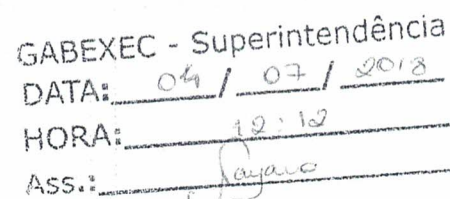 GABEXEC - Superintendência
DATA: 04 / 07 / 2018
HORA: 12:12
Ass.: